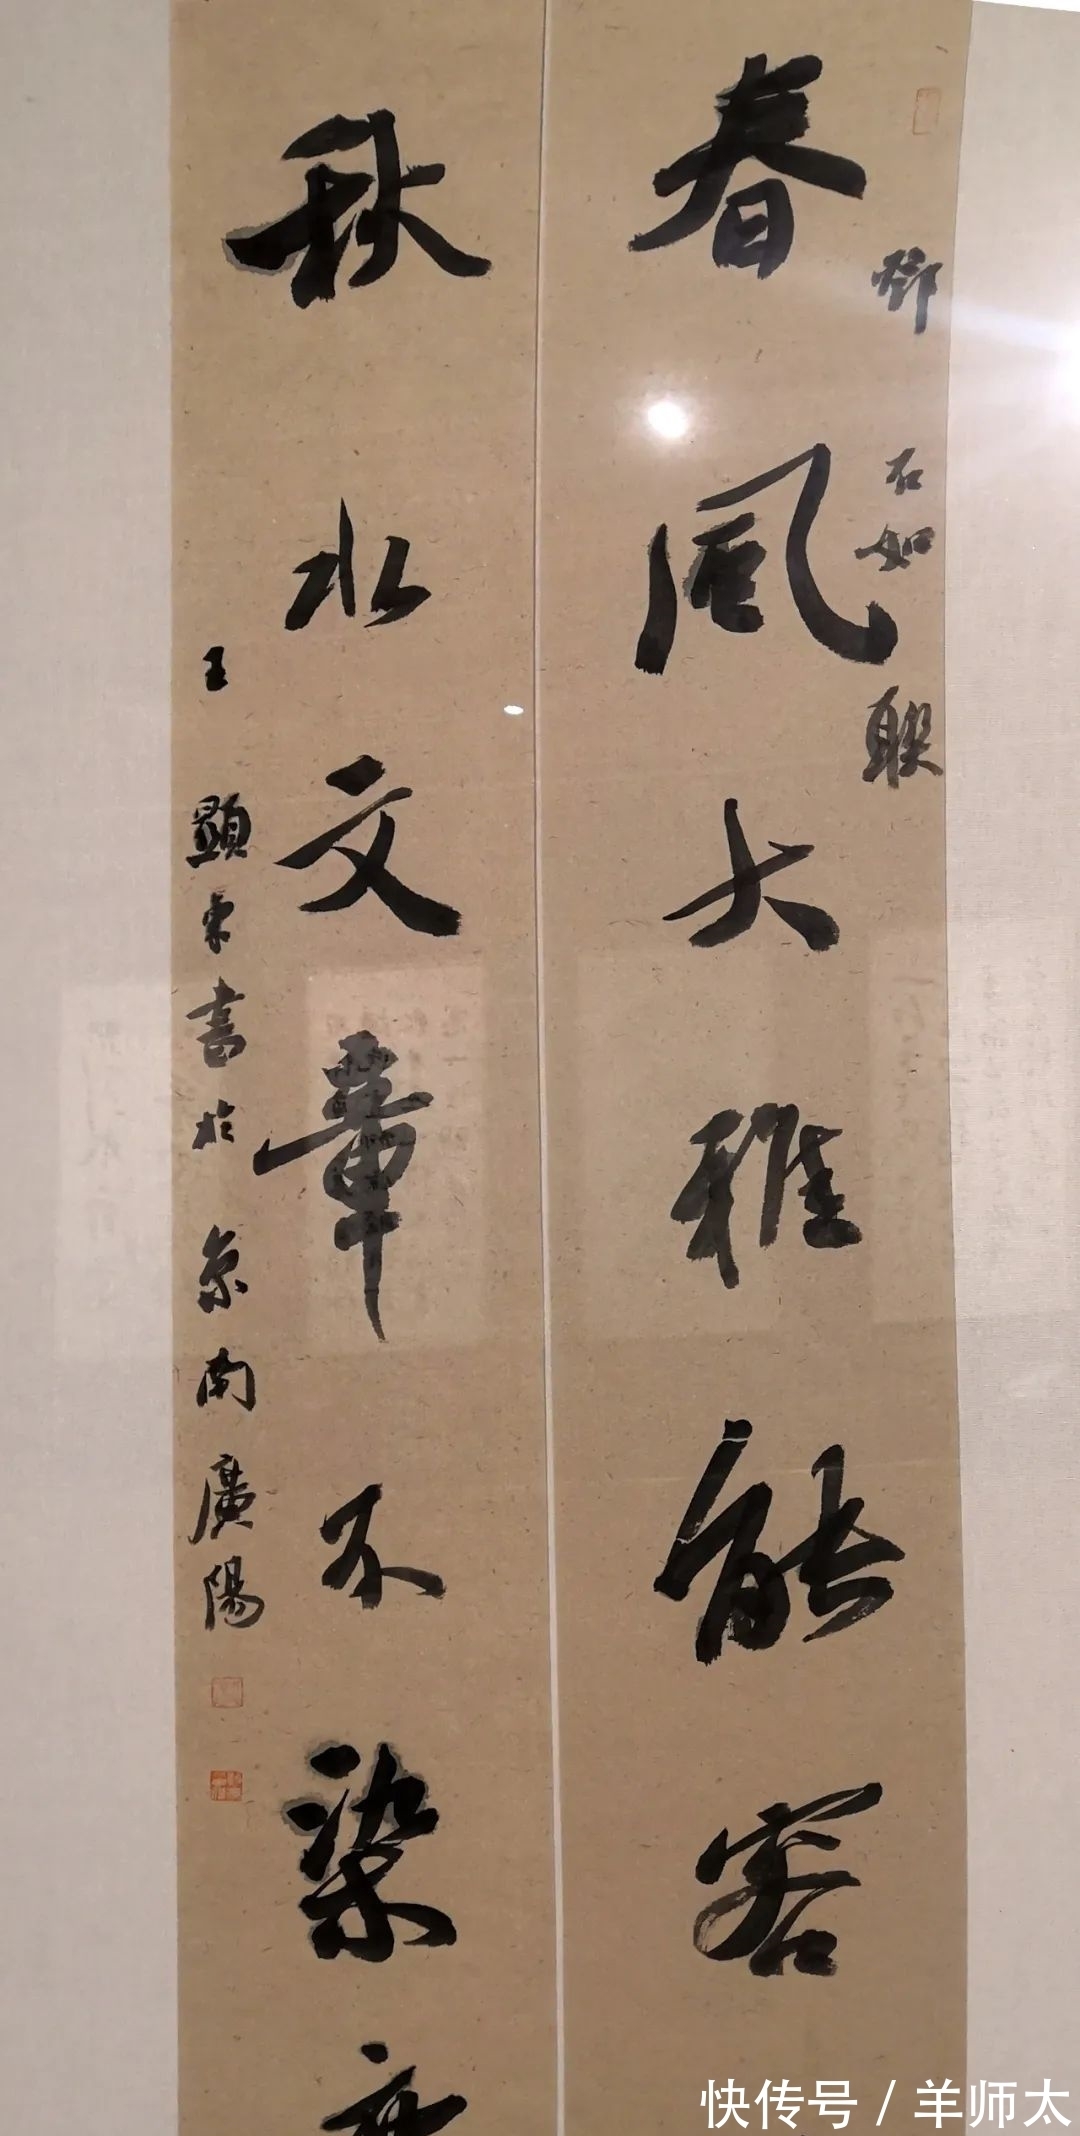 春風大雅能容
鄧石如聯
秋水文章不染
王顯東書於京南廣陽
快传号 / 羊师太